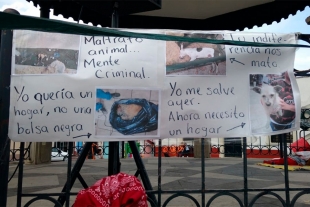 Maltrato
animal...
Mente
Criminal.
Tu indife
rencia nos
mato
Yo quería un
hogar, no una
bolsa negra
Yo me salve
ayer.
Ahora necesito
un hogar